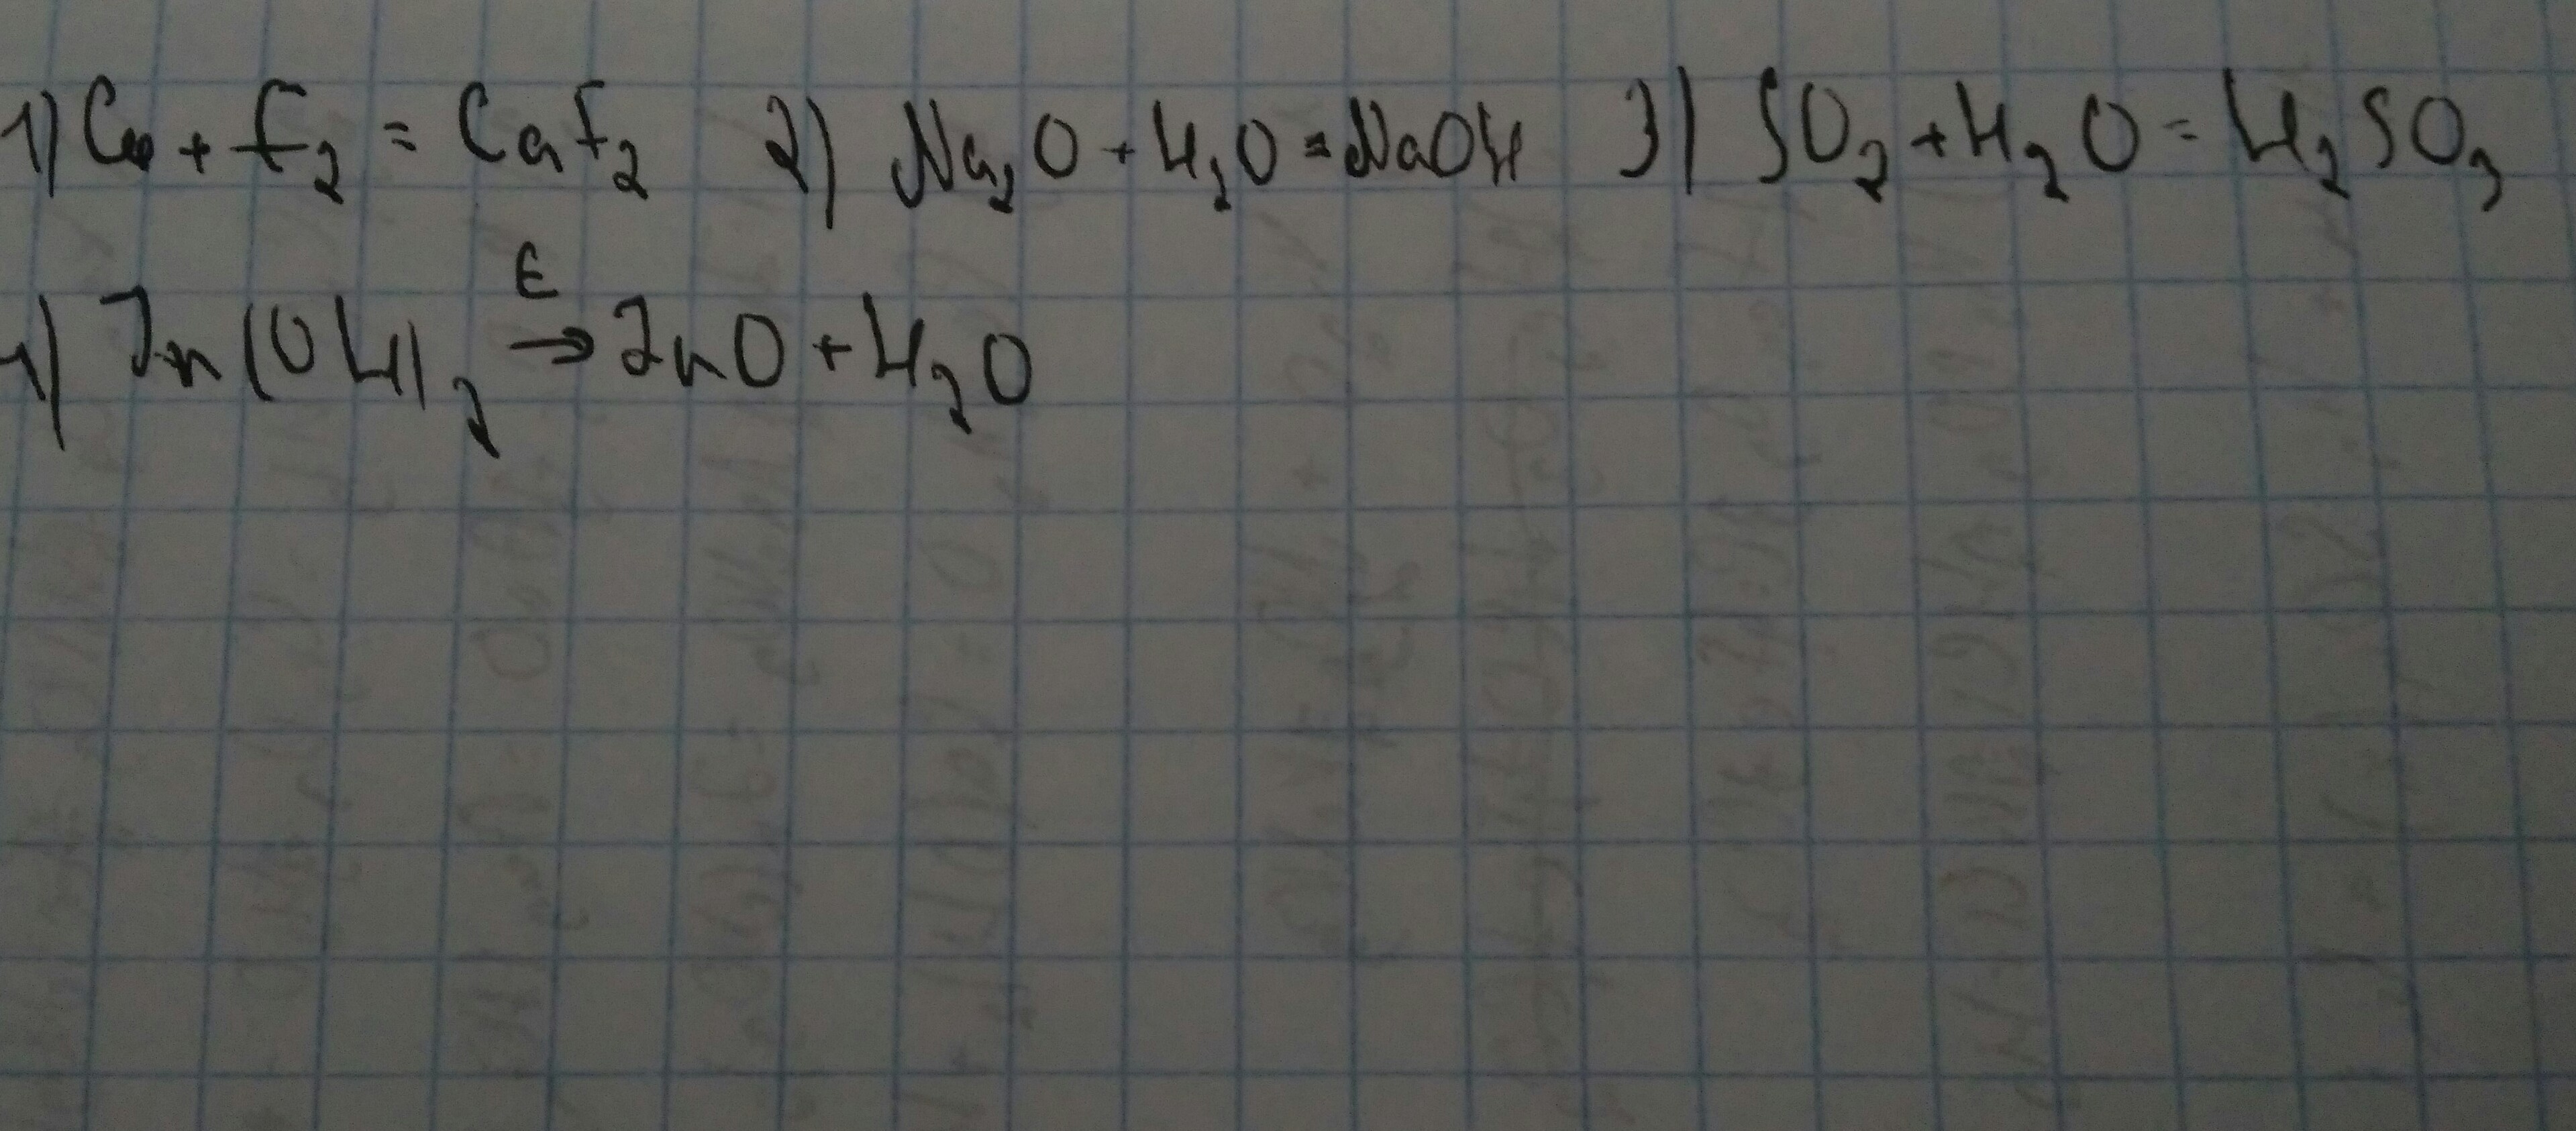 1) Ca + F₂ = CaF₂ 2) Na₂O + H₂O = NaOH 3) SO₂ + H₂O = H₂SO₃
4) Zn(OH)₂ t→ ZnO + H₂O